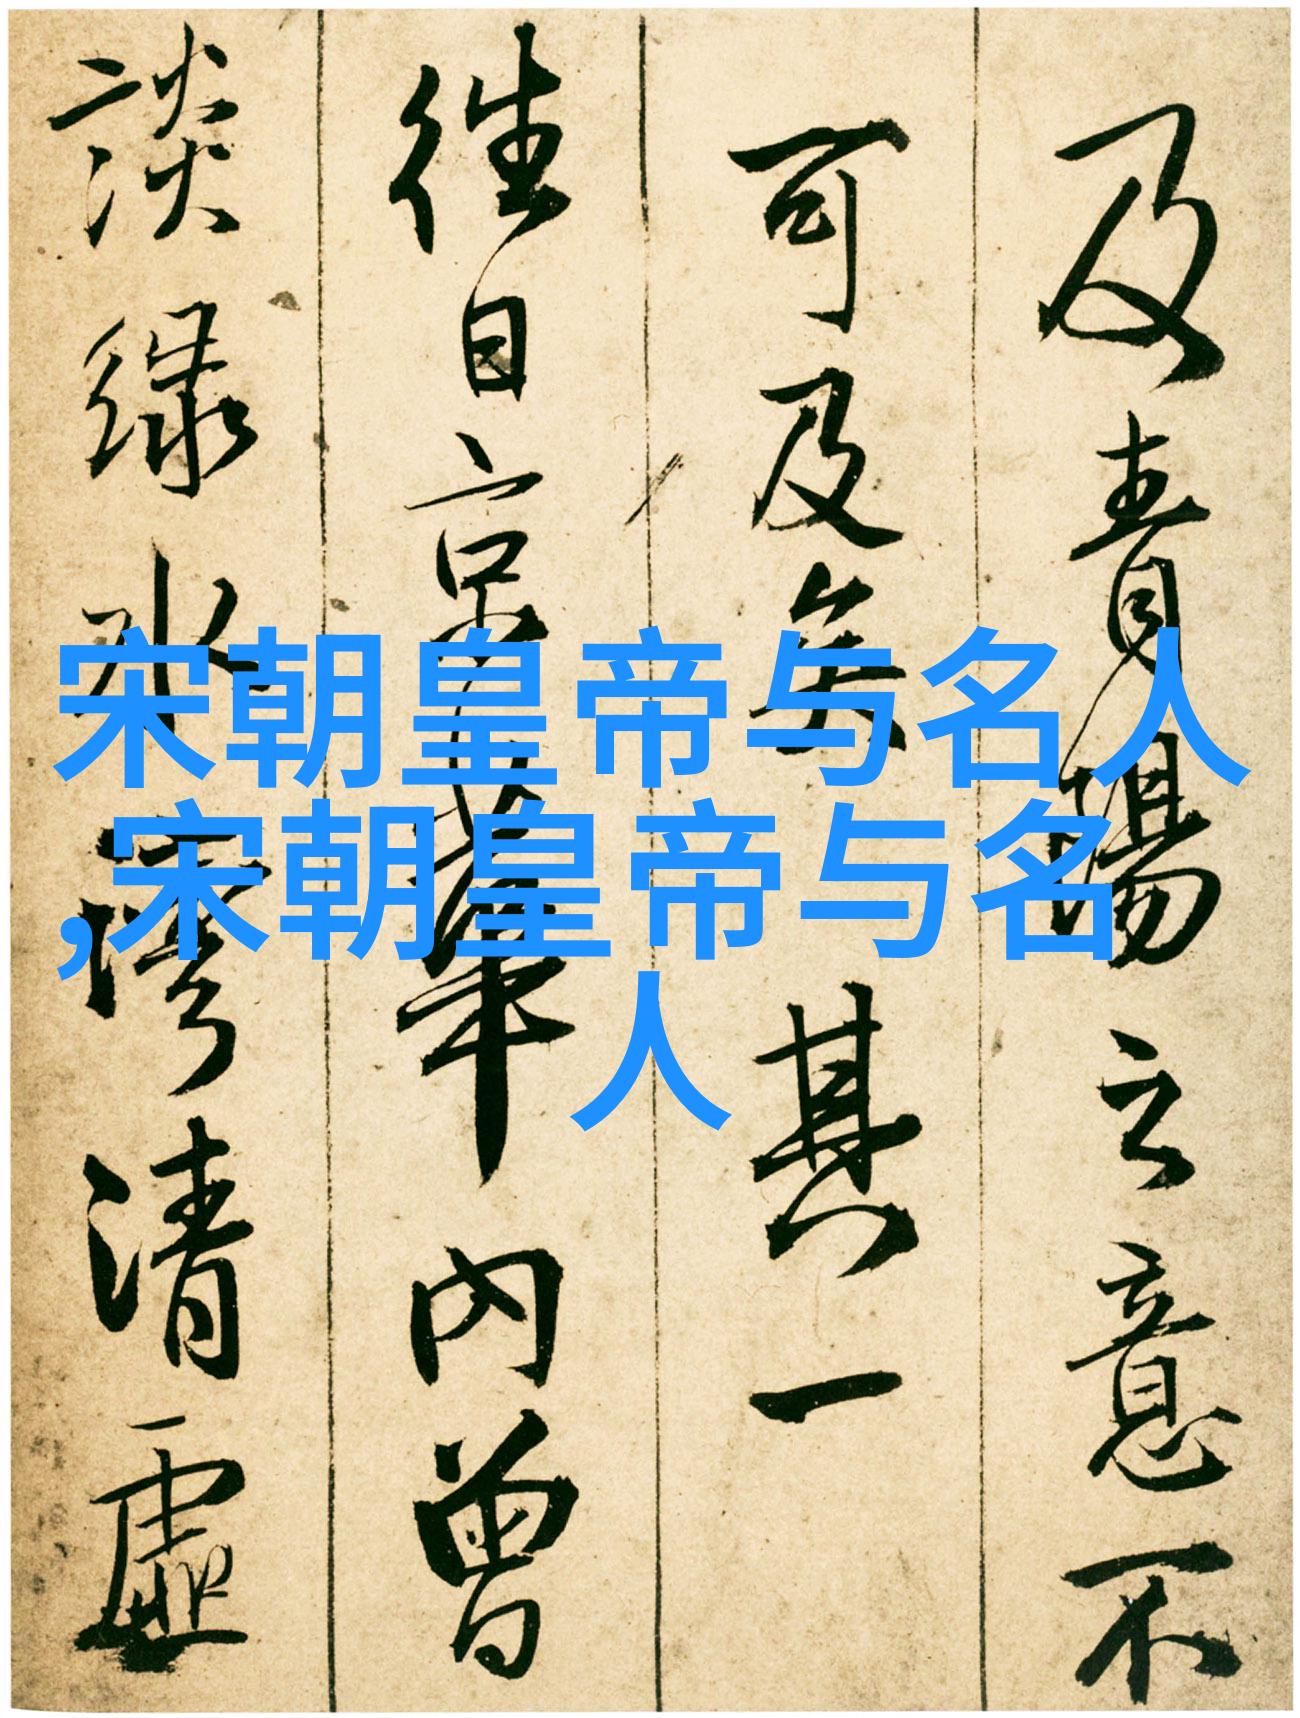 及青陽之意不
可及矣其一
往日京華內曾
談綠水灣清虛
宋朝皇帝与名人
,宋朝皇帝与名
人